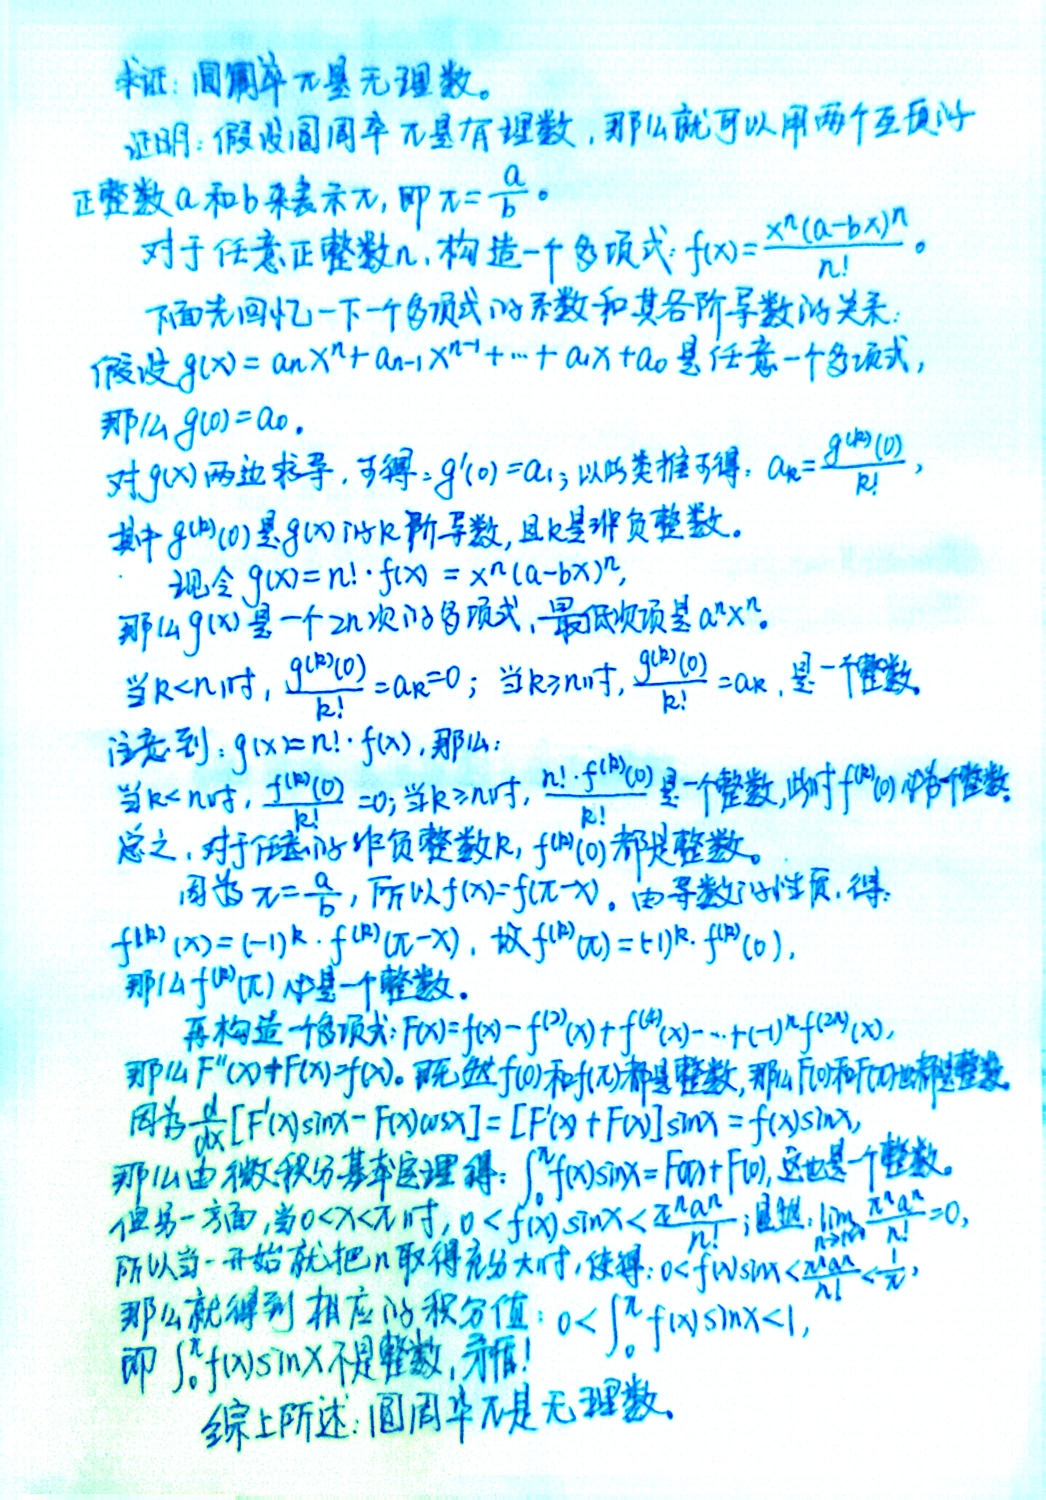 求证：圆周率π是无理数。
证明：假设圆周率π是有理数，那么就可以用两个互质的
正整数a和b来表示π，即π=a/b。
对于任意正整数n，构造一个多项式：f(x)=x^n(a-bx)^n/n!。
下面先回忆一下一个多项式的系数和其各阶导数的关系：
假设g(x)=anx^n+an-1x^n-1+…+a1x+a0是任意一个多项式，
那么g(0)=a0。
对g(x)两边求导，可得：g'(0)=a1；以此类推可得：ak=g^(k)(0)/k!，
其中g^(k)(0)是g(x)的k阶导数，且k是非负整数。
现令g(x)=n!·f(x)=x^n(a-bx)^n，
那么g(x)是一个2n次的多项式，最低次项是a^nx^n。
当k<n时，g^(k)(0)/k!=ak=0；当k≥n时，g^(k)(0)/k!=ak，是一个整数。
注意到：g(x)=n!·f(x)，那么：
当k<n时，f^(k)(0)/k!=0；当k≥n时，n!·f^(k)(0)/k!是一个整数，此时f^(k)(0)也为一个整数。
总之，对于任意的非负整数k，f^(k)(0)都是整数。
因为π=a/b，所以f(x)=f(π-x)。由导数的性质，得：
f^(k)(x)=(-1)^k·f^(k)(π-x)，故f^(k)(π)=(-1)^k·f^(k)(0)，
那么f^(k)(π)也是一个整数。
再构造一个多项式：F(x)=f(x)-f^(2)(x)+f^(4)(x)-…+(-1)^nf^(2n)(x)，
那么F''(x)+F(x)=f(x)。既然f(0)和f(π)都是整数，那么F(0)和F(π)也都是整数。
因为d/dx[F'(x)sinx-F(x)cosx]=[F''(x)+F(x)]sinx=f(x)sinx，
那么由微积分基本定理得：∫0^πf(x)sinx=F(π)+F(0)，这也是一个整数。
但另一方面，当0<x<π时，0<f(x)sinx<π^na^n/n!；显然：lim n→∞ π^na^n/n!=0，
所以当一开始就把n取得充分大时，使得：0<f(x)sinx<π^na^n/n!<1/π，
那么就得到相应的积分值：0<∫0^πf(x)sinx<1，
即∫0^πf(x)sinx不是整数，矛盾！
综上所述：圆周率π是无理数。